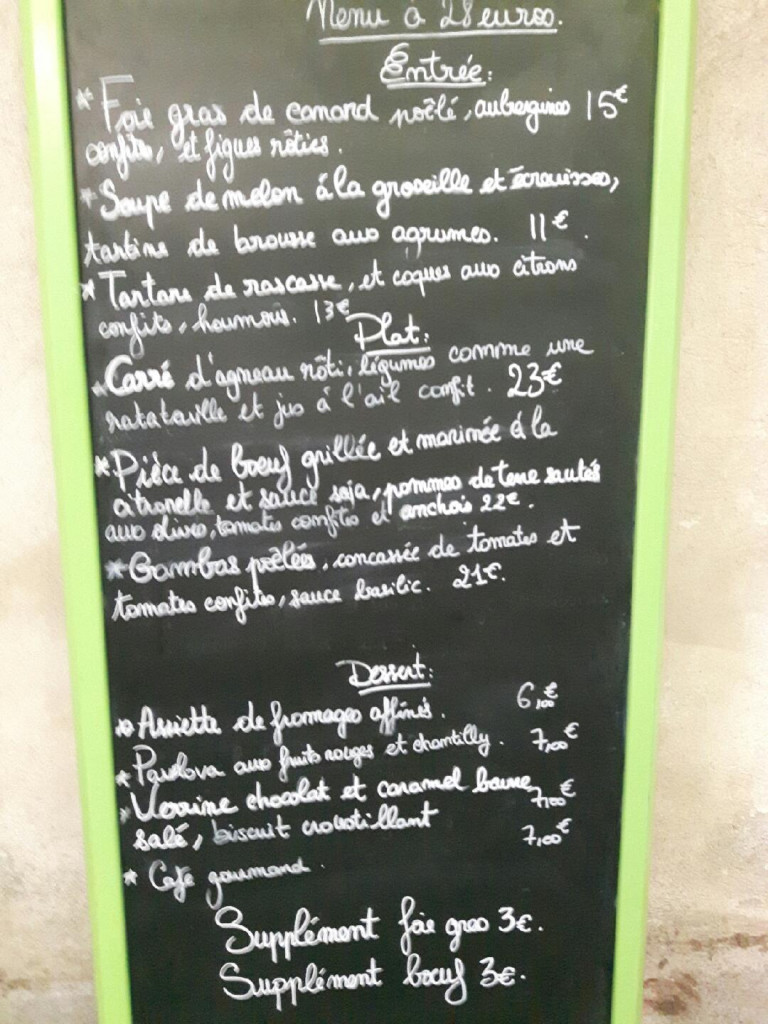 Menu à 28 euros.
Entrée:
* Foie gras de canard poêlé, aubergines 15€
confites, et figues rôties.
* Soupe de melon à la groseille et écrevisses,
tartine de brousse aux agrumes. 11€.
* Tartare de rascasse, et coques aux citrons
confits, houmous. 13€
Plat:
* Carré d'agneau rôti, légumes comme une
ratatouille et jus à l'ail confit. 23€
* Pièce de boeuf grillée et marinée à la
citronelle et sauce soja, pommes de terre sautés
aux olives, tomates confites et anchois 22€.
* Gambas poêlées, concassée de tomates et
tomates confites, sauce basilic. 21€.
Dessert:
* Assiette de fromages affinés. 6,00€
* Pavlova aux fruits rouges et chantilly. 7,00€
* Verrine chocolat et caramel beurre 7,00€
salé, biscuit croustillant 7,00€
* Café gourmand.
Supplément foie gras 3€.
Supplément boeuf 3€.